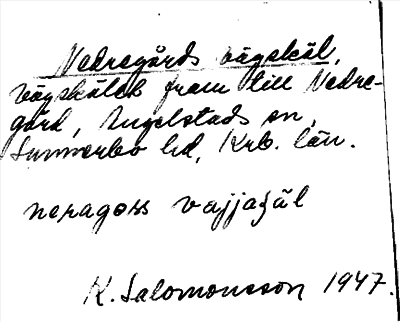 Nedregårds vägskäl,
vägskälet fram till Nedre-
gård, Angelstads sn,
Sunnerbo hd, Krb. län.
neragoss vajjaʃäl
K. Salomonsson 1947.